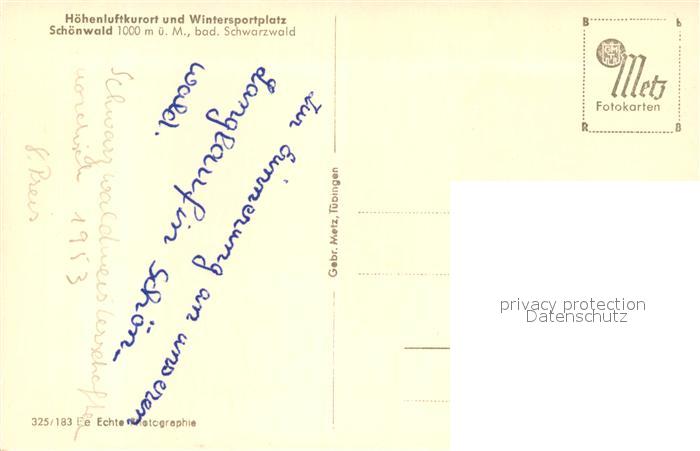 Höhenluftkurort und Wintersportplatz
Schönwald 1000 m ü. M., bad. Schwarzwald
B
R
B
Metz
Fotokarten
Zur Erinnerung an unseren
Langlauf in Schön-
wald.
Schwarzwaldmeisterschaften
nordisch 1953
8. Preis
Gebr. Metz, Tübingen
325/183 Ee Echte Photographie
privacy protection
Datenschutz